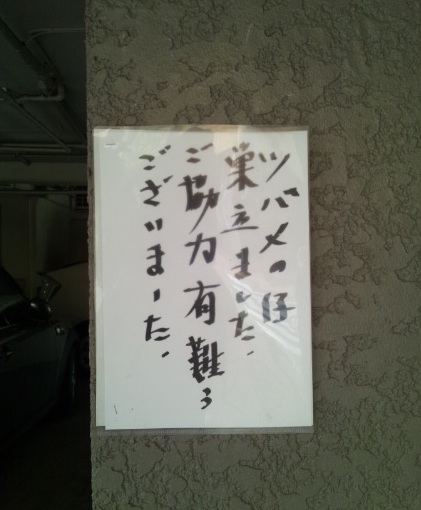 ツバメの仔
巣立ました.
ご協力有難う
ございました.